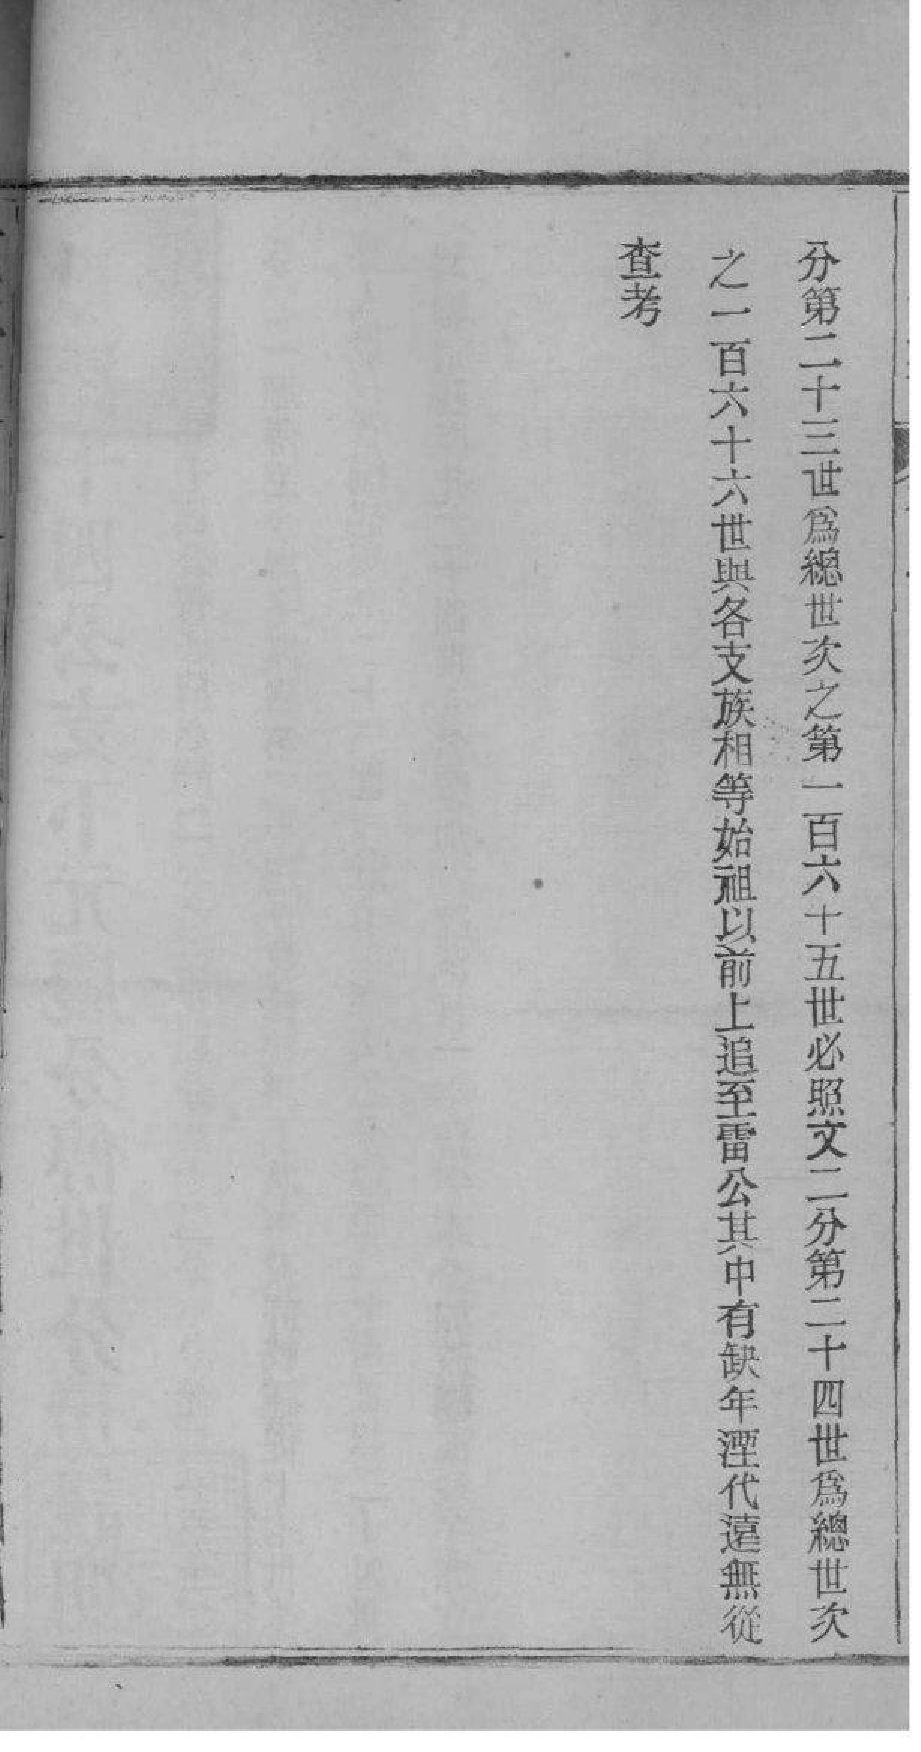 分第二十三世爲總世次之第一百六十五世必照文二分第二十四世爲總世次
之一百六十六世與各支族相等始祖以前上追至雷公其中有缺年湮代遠無從
查考